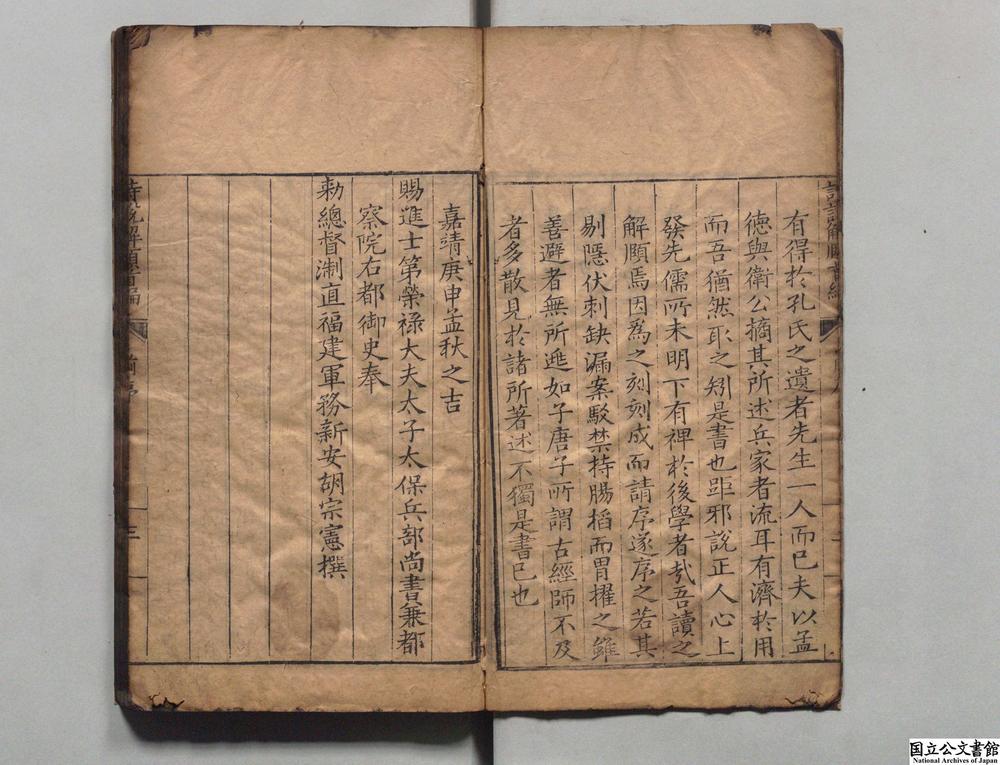 有得於孔氏之遺者先生一人而已夫以孟
德與衛公摘其所述兵家者流耳有濟於用
而吾猶然取之矧是書也距邪說正人心上
發先儒所未明下有裨於後學者哉吾讀之
解頥焉因為之刻刻成而請序遂序之若其
剔隱伏刺缺漏案駁禁持膓搯而胃擢之雖
善避者無所遁如子唐子所謂古經師不及
者多散見於諸所著述不獨是書已也
嘉靖庚申孟秋之吉
賜進士第榮禄大夫太子太保兵部尚書兼都
察院右都御史奉
勑總督淛直福建軍務新安胡宗憲撰
詩說解頤首編
序
三
国立公文書館
National Archives of Japan